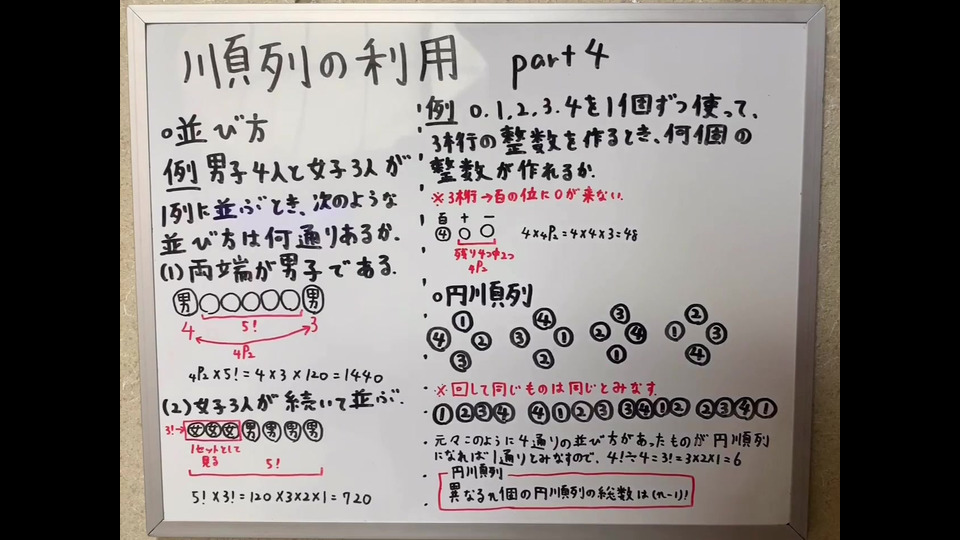 順列の利用 part 4
○並び方
例 男子4人と女子3人が
1列に並ぶとき、次のような
並び方は何通りあるか.
(1) 両端が男子である.
男○○○○○男
4 5! 3
4P2
4P2×5!=4×3×120=1440
(2) 女子3人が続いて並ぶ.
3!→女女女男男男男
1セットとして
見る
5!
5!×3!=120×3×2×1=720
例 0.1.2.3.4を1個ずつ使って、
3桁の整数を作るとき、何個の
整数が作れるか.
※3桁→百の位に0が来ない.
百 十 一
④○○ 4×4P2=4×4×3=48
残り4つ中2つ
4P2
○円順列
① ④ ③ ②
④ ② ③ ① ② ④ ① ③
③ ② ① ④
※回して同じものは同じとみなす.
①②③④ ④①②③ ③④①② ②③④①
・元々このように4通りの並び方があったものが円順列
になれば1通りとみなすので、4!÷4=3!=3×2×1=6
円順列
異なるn個の円順列の総数は(n-1)!